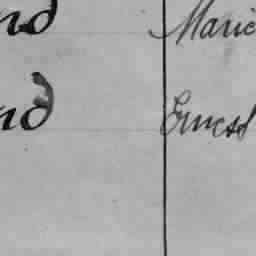 nd Marie
nd Ernest